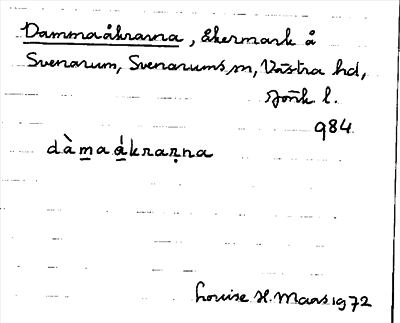 Dammaåkrarna, åkermark å
Svenarum, Svenarums sn, Västra hd,
Jönk. l.
984
dàmaákraṛna
Louise H. Maars 1972